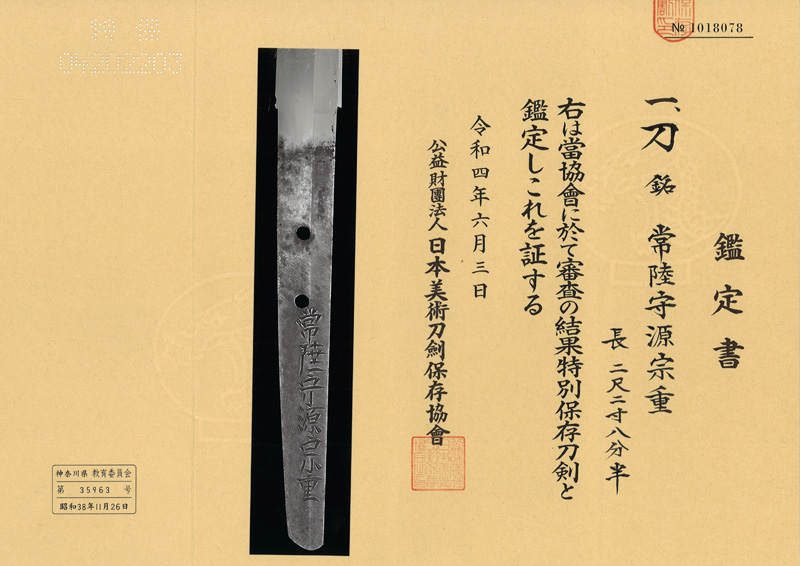 № 1018078
鑑定書
一、刀 銘 常陸守源宗重
長 二尺二寸八分半
右は當協會に於て審査の結果特別保存刀剣と
鑑定しこれを証する
令和四年六月三日
公益財團法人 日本美術刀劍保存協會
常陸守源宗重
特保
04.2022.03
神奈川県 教育委員会
第 35963 号
昭和38年11月26日